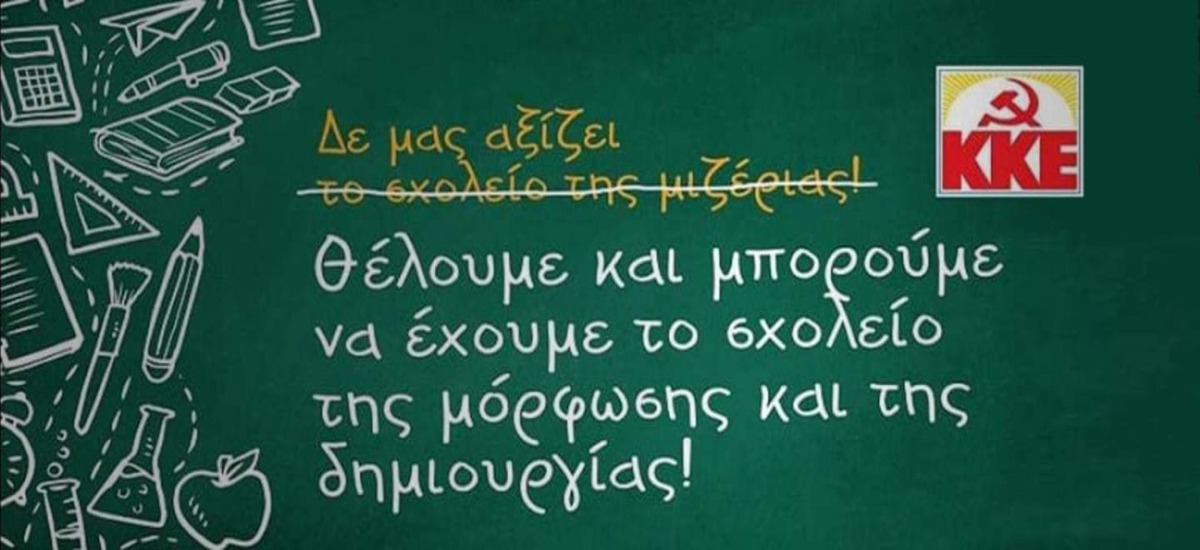 Δε μας αξίζει
το σχολείο της μιζέριας!
ΚΚΕ
θέλουμε και μπορούμε
να έχουμε το σχολείο
της μόρφωσης και της
δημιουργίας!